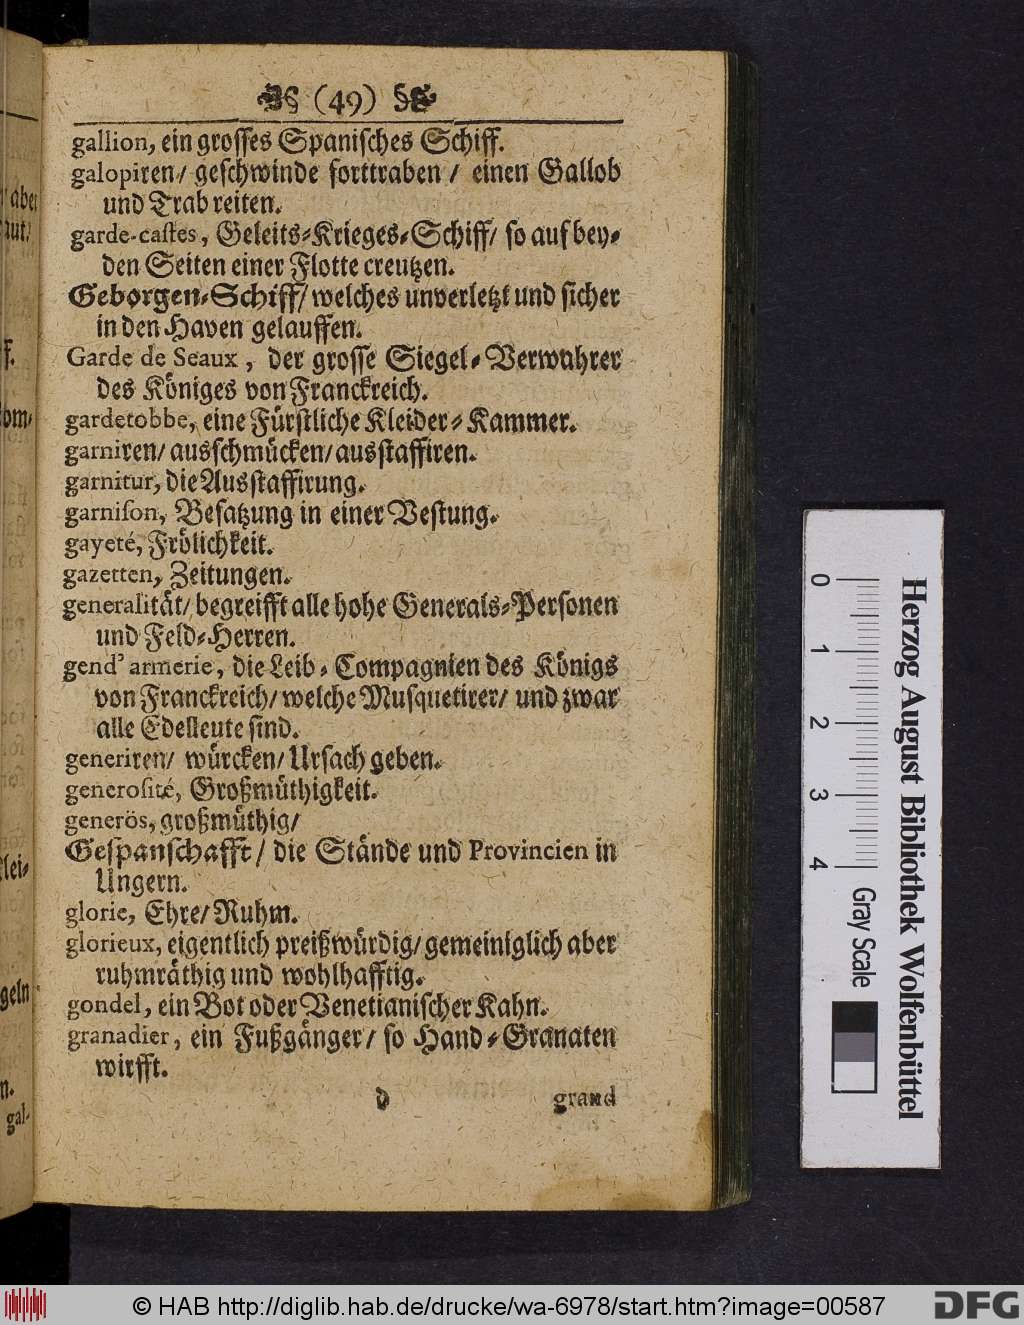 (49)
gallion, ein grosses Spanisches Schiff.
galopiren/ geschwinde forttraben / einen Gallob
und Trab reiten.
garde-castes, Geleits-Krieges-Schiff/ so auf bey-
den Seiten einer Flotte creutzen.
Geborgen-Schiff/ welches unverletzt und sicher
in den Haven gelauffen.
Garde de Seaux, der grosse Siegel-Verwahrer
des Königes von Franckreich.
garderobbe, eine Fürstliche Kleider-Kammer.
garniren/ ausschmücken/ ausstaffiren.
garnitur, die Ausstaffirung.
garnison, Besatzung in einer Vestung.
gayeté, Frölichkeit.
gazetten, Zeitungen.
generalität/ begreifft alle hohe Generals-Personen
und Feld-Herren.
gend'armerie, die Leib-Compagnien des Königs
von Franckreich/ welche Musquetirer/ und zwar
alle Edelleute sind.
generiren/ würcken/ Ursach geben.
generosité, Großmüthigkeit.
generös, großmüthig/
Gespanschafft/ die Stände und Provincien in
Ungern.
glorie, Ehre/ Ruhm.
glorieux, eigentlich preißwürdig/ gemeiniglich aber
ruhmräthig und wohlhafftig.
gondel, ein Bot oder Venetianischer Kahn.
granadier, ein Fußgänger/ so Hand-Granaten
wirfft.
d grand
aber
f.
lei-
geln
n.
gal-
0 1 2 3 4
Gray Scale
Herzog August Bibliothek Wolfenbüttel
© HAB http://diglib.hab.de/drucke/wa-6978/start.htm?image=00587
DFG